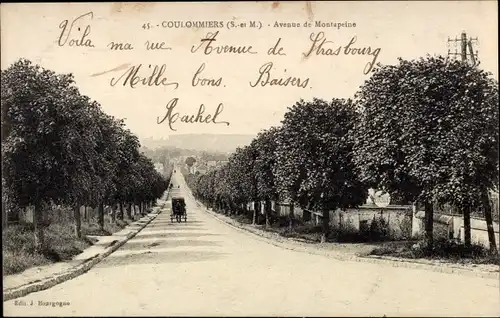 45. - COULOMMIERS (S.-et M.) - Avenue de Montapeine
Voila ma rue Avenue de Strasbourg
Mille bons Baisers
Rachel
Edit. J. Bourgogne